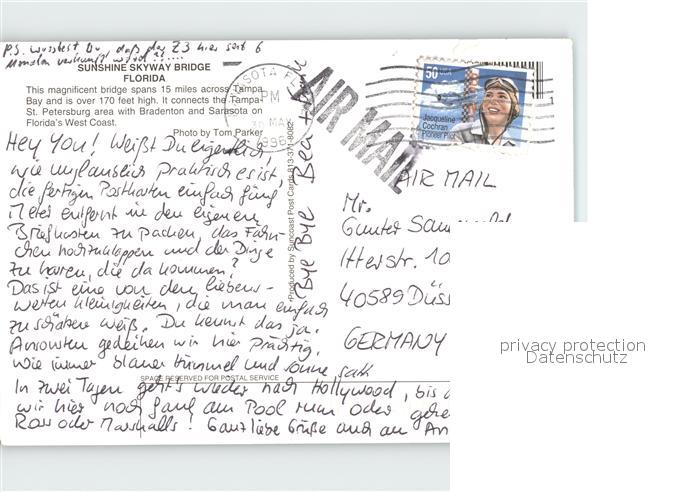 P.S. wusstest Du, daß der Z3 hier seit 6
Monaten verkauft wird?!.....
SUNSHINE SKYWAY BRIDGE
FLORIDA
This magnificent bridge spans 15 miles across Tampa
Bay and is over 170 feet high. It connects the Tampa-
St. Petersburg area with Bradenton and Sarasota on
Florida's West Coast.
Photo by Tom Parker
Hey You! Weißt Du eigentlich,
wie unglaublich praktisch es ist,
die fertigen Postkarten einfach fünf
Meter entfernt in den eigenen
Briefkasten zu packen, das Fähn-
chen hochzuklappen und der Dinge
zu harren, die da kommen?
Das ist eine von den liebens-
werten Kleinigkeiten, die man einfach
zu schätzen weiß. Du kennst das ja.
Ansonsten gedeihen wir hier prächtig.
Wie immer blauer Himmel und Sonne satt.
In zwei Tagen geht's wieder nach Hollywood, bis
wir hier noch faul am Pool rum oder
Ross oder Marshalls! Ganz liebe Grüße auch an
SPACE RESERVED FOR POSTAL SERVICE
Bye Bye Bea +
Produced by Suncoast Post Cards 813-371-8082
SARASOTA FL
PM
MAY
1996
AIR MAIL
50 USA
Jacqueline
Cochran
Pioneer Pilot
AIR MAIL
Mr.
Günter
Itterstr. 10
40589 Düss
GERMANY
privacy protection
Datenschutz